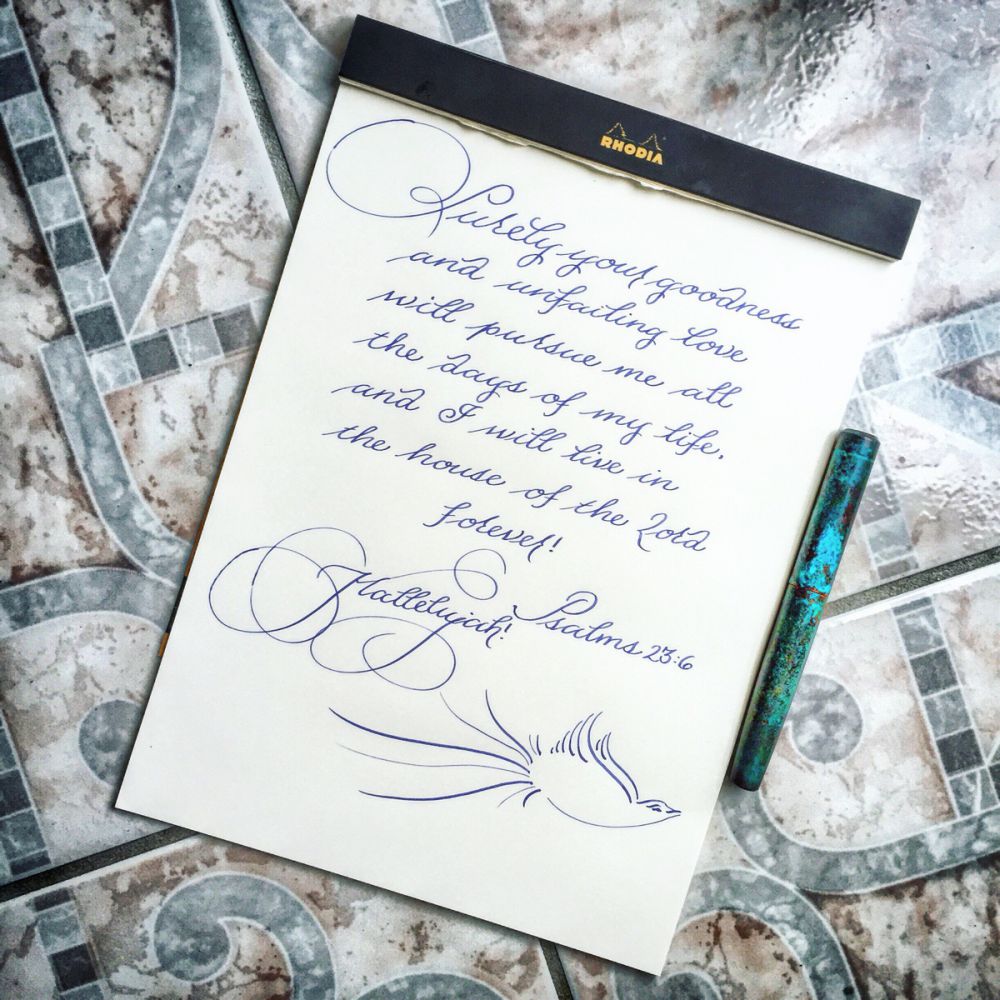 RHODIA
Surely your goodness
and unfailing love
will pursue me all
the days of my life,
and I will live in
the house of the Lord
forever!
Hallelujah! Psalms 23:6